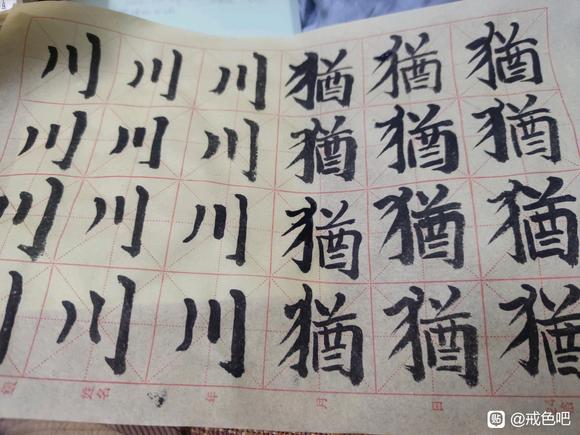 川 川 川 猶 猶 猶
川 川 川 猶 猶 猶
川 川 川 猶 猶 猶
川 川 猶 猶 猶
姓名 年 月 日
贴 @戒色吧